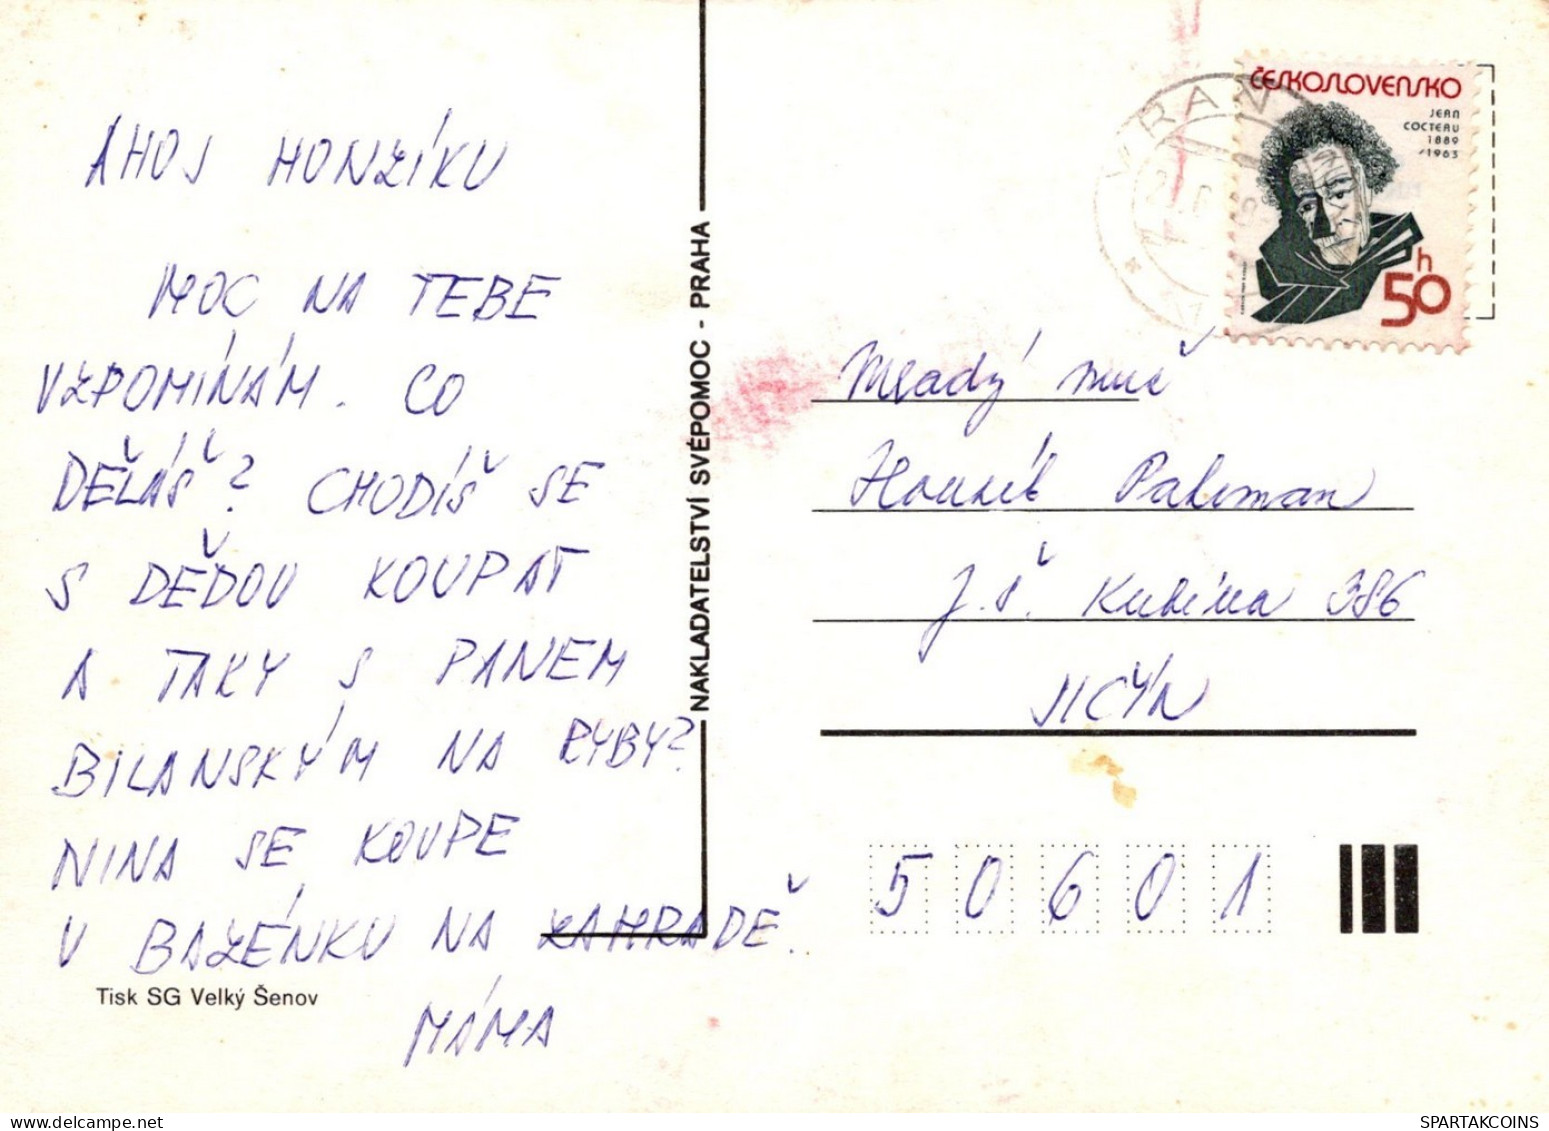 AHOJ HONZÍKU
MOC NA TEBE
VZPOMÍNÁM. CO
DĚLÁŠ? CHODÍŠ SE
S DĚDOU KOUPAT
A TAKY S PANEM
BILANSKÝM NA RYBY?
NINA SE KOUPE
V BAZÉNKU NA ZAHRADĚ.
MÁMA
Tisk SG Velký Šenov
NAKLADATELSTVÍ SVÉPOMOC - PRAHA
ČESKOSLOVENSKO
JEAN
COCTEAU
1889
/1963
50h
VRAN
Mladý muž
Honzík
J. Š. Kubína 386
JIČÍN
50601
SPARTAKCOINS